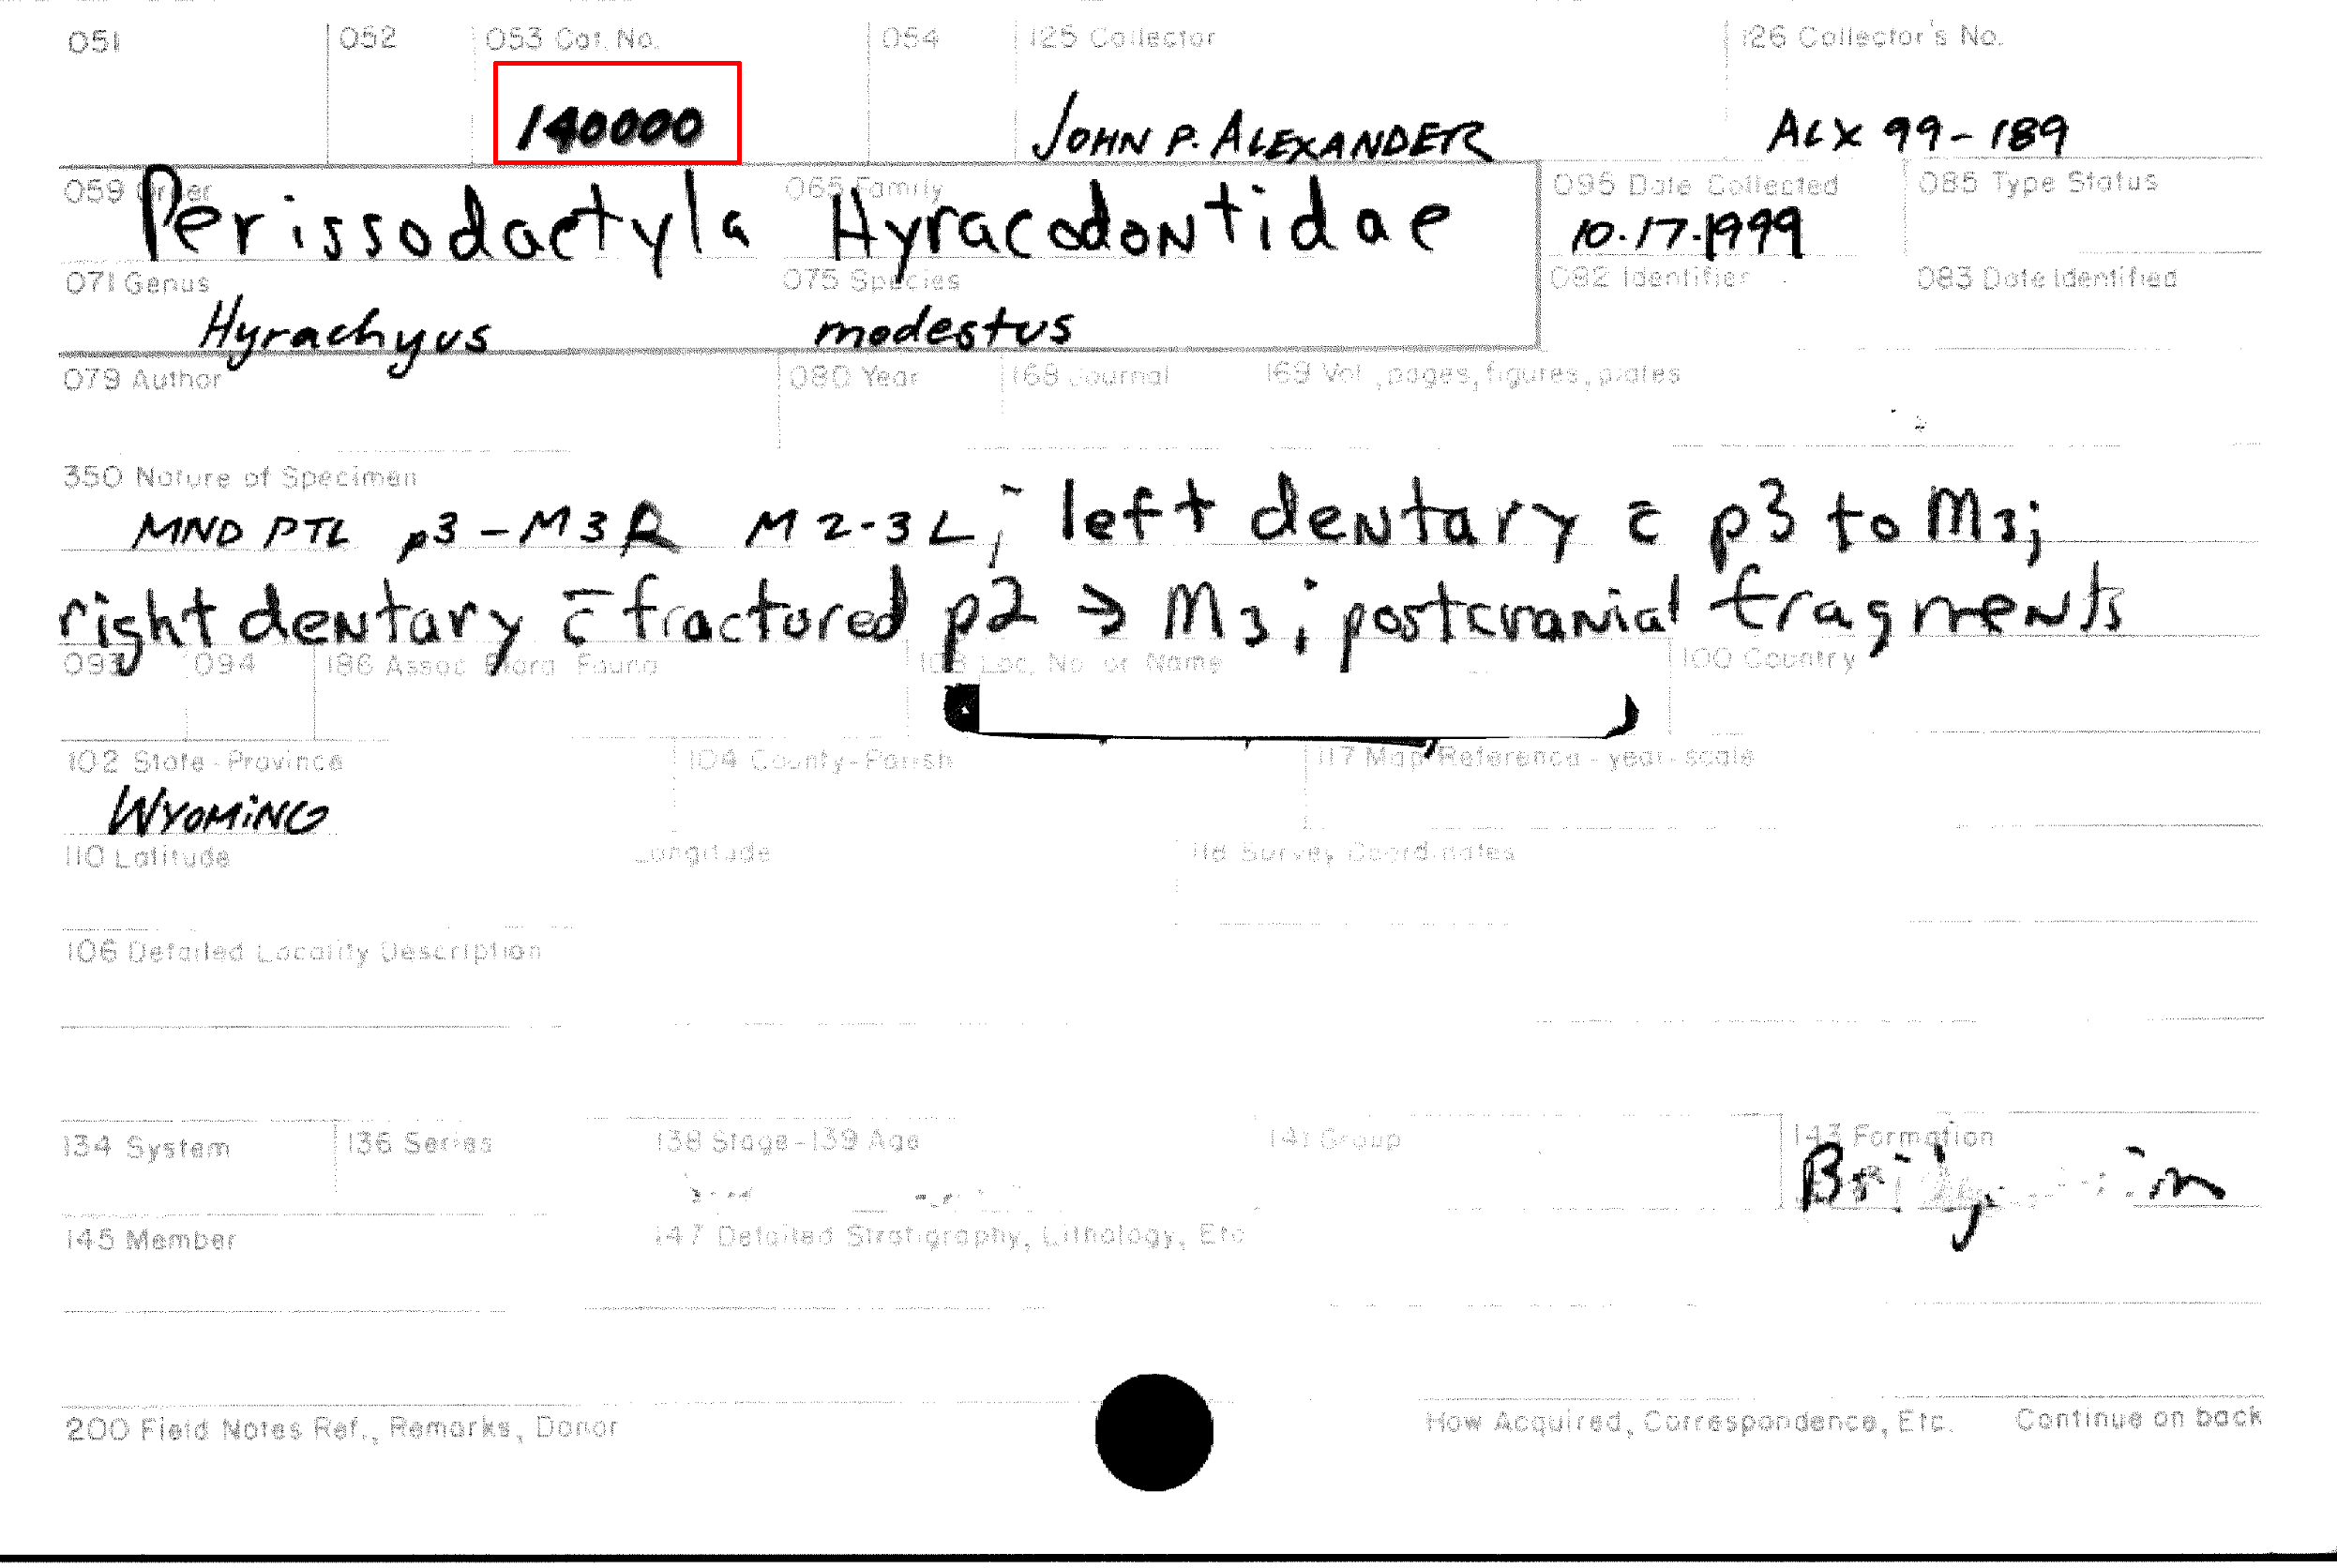 051 052 053 Cat. No. 054 125 Collector 126 Collector's No.
140000 JOHN P. ALEXANDER ALX 99-189
059 Order 065 Family 095 Date Collected 085 Type Status
Perissodactyla Hyracodontidae 10.17.1999
071 Genus 075 Species 082 Identifier 083 Date Identified
Hyrachyus modestus
079 Author 080 Year 168 Journal 169 Vol., pages, figures, plates
350 Nature of Specimen
MND PTL p3-M3R M2-3L; left dentary c̄ p3 to M3;
right dentary c̄ fractured p2 → M3; postcranial fragments
093 094 186 Assoc Flora Fauna 103 Loc. No. or Name 100 Country
102 State-Province 104 County-Parish 117 Map Reference-year-scale
WYOMING
110 Latitude Longitude 118 Survey Coordinates
106 Detailed Locality Description
134 System 136 Series 138 Stage-139 Age 141 Group 143 Formation
145 Member 147 Detailed Stratigraphy, Lithology, Etc
200 Field Notes Ref., Remarks, Donor How Acquired, Correspondence, Etc. Continue on back